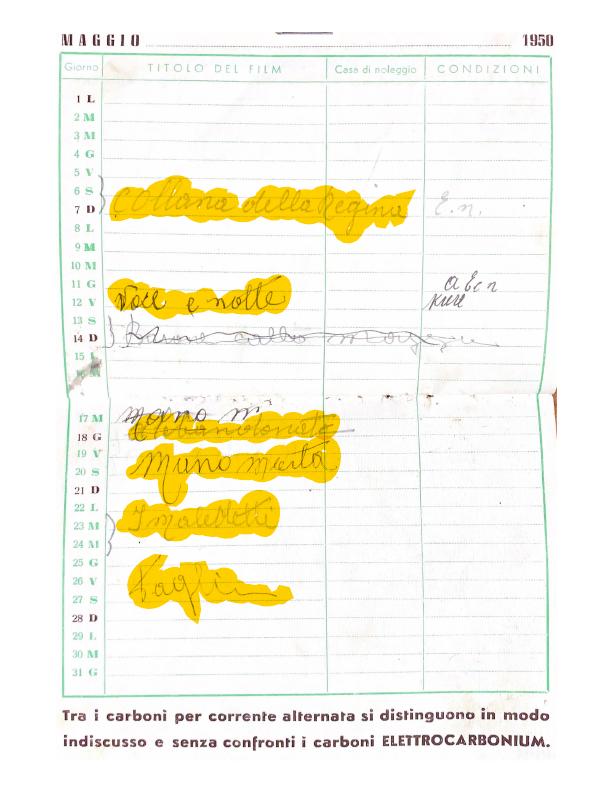 MAGGIO 1950
Giorno TITOLO DEL FILM Casa di noleggio CONDIZIONI
1 L
2 M
3 M
4 G
5 V
6 S Collana della Regina E.n.
7 D
8 L
9 M
10 M
11 G
12 V Voce e notte
13 S
14 D
15 L
16 M
17 M mano m
18 G
19 V
20 S Mano morta
21 D
22 L
23 M I maledetti
24 M
25 G
26 V
27 S
28 D
29 L
30 M
31 G
Tra i carboni per corrente alternata si distinguono in modo
indiscusso e senza confronti i carboni ELETTROCARBONIUM.